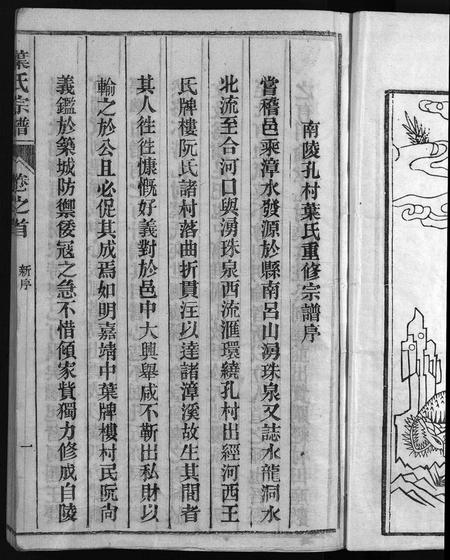 南陵孔村葉氏重修宗譜序
嘗稽邑乘漳水發源於縣南呂山湧珠泉又誌水龍洞水
北流至合河口與湧珠泉西流滙環繞孔村出經河西王
氏牌樓阮氏諸村落曲折貫注以達諸漳溪故生其間者
其人徃徃慷慨好義對於邑中大興舉咸不靳出私財以
輸之於公且必促其成焉如明嘉靖中葉牌樓村民阮尚
義鑑於築城防禦倭冦之急不惜傾家貲獨力修成自陵
葉氏宗譜
卷之首
新序
一